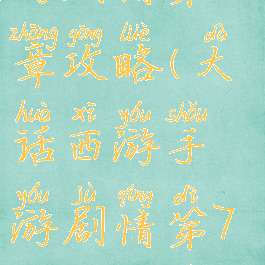 zhāng gōng lüè dà
章攻略(大
huà xī yóu shǒu
话西游手
yóu jù qíng dì
游剧情第7